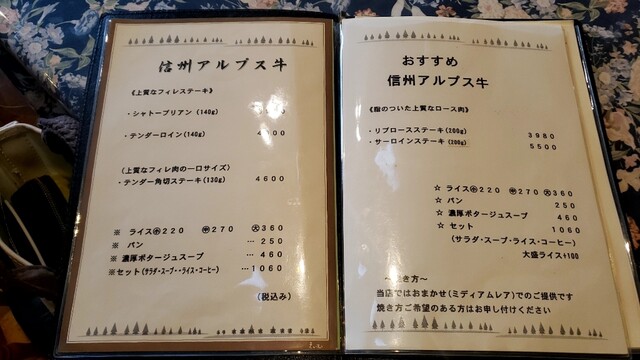 信州アルプス牛
《上質なフィレステーキ》
・シャトーブリアン (140g)
・テンダーロイン (140g)
(上質なフィレ肉の一口サイズ)
・テンダー角切ステーキ(130g) 4600
※ ライス㊥220 ㊥270 ㊛360
※ パン … 250
※ 濃厚ポタージュスープ … 460
※セット(サラダ・スープ・・ライス・コーヒー) …1060
(税込み)
おすすめ
信州アルプス牛
《脂のついた上質なロース肉》
・リブロースステーキ(200g) 3980
・サーロインステーキ(200g) 5500
☆ ライス㊥220 ㊥270 ㊛360
☆ パン 250
☆ 濃厚ポタージュスープ 460
☆ セット 1060
(サラダ・スープ・ライス・コーヒー)
大盛ライス+100
～焼き方～
当店ではおまかせ(ミディアムレア)でのご提供です
焼き方ご希望のある方はお申し付けください